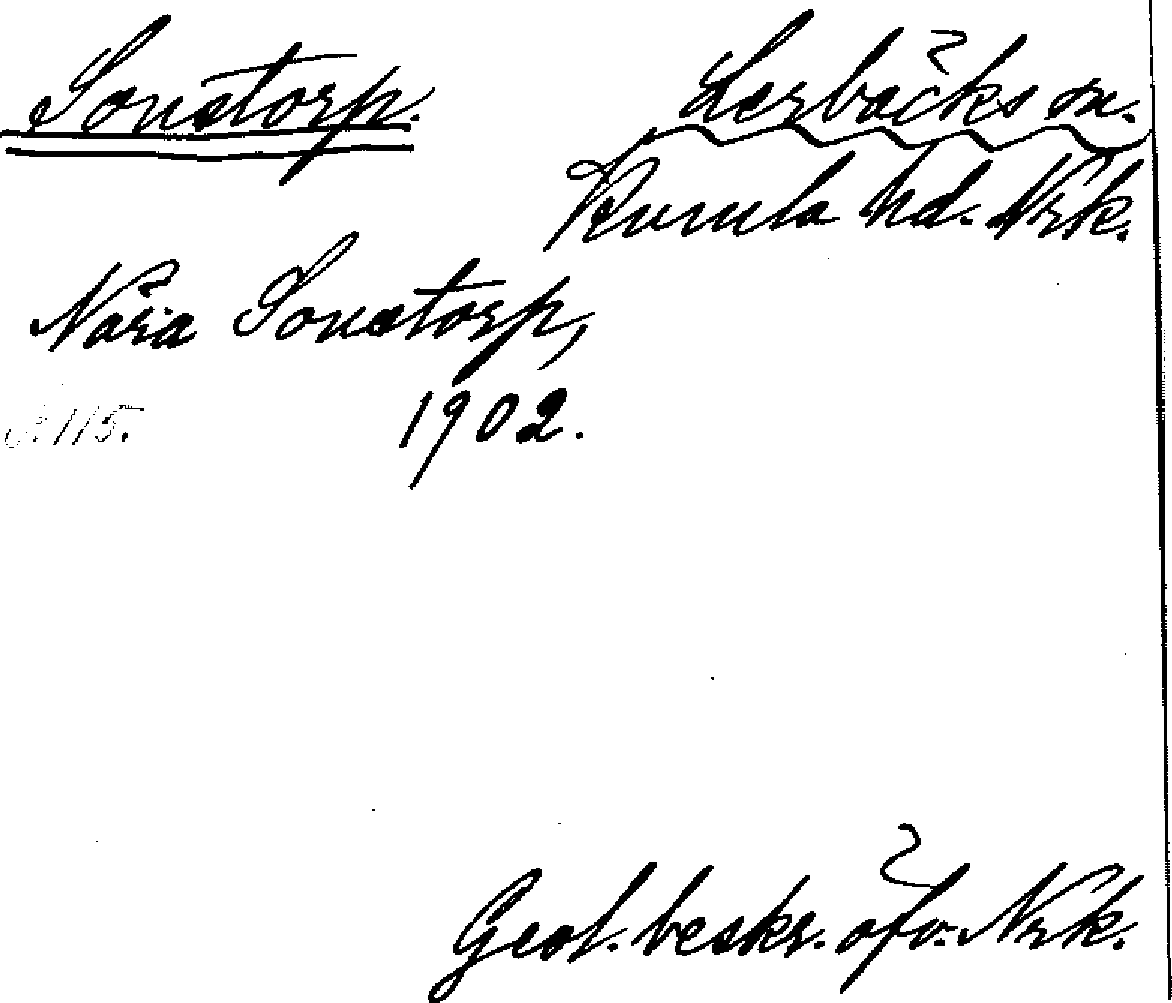 Sonstorp. Lerbäcks sn.
Kumla hd. Nrk.
Nära Sonstorp,
s. 115. 1902.
Geol. beskr. öfv. Nrk.